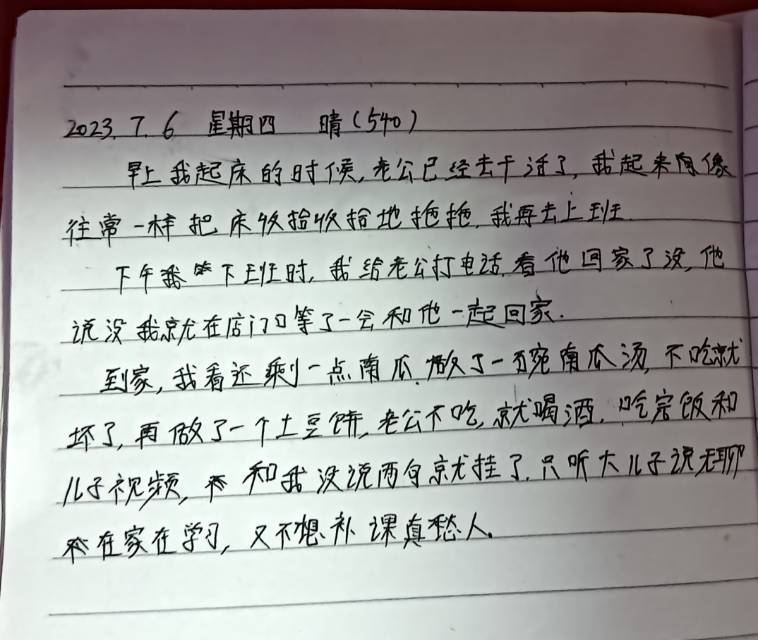 2023.7.6 星期四 晴(540)
早上我起床的时候,老公已经去干活了,我起来后像
往常一样把床收拾收拾地拖拖,我再去上班.
下午我下班时,我给老公打电话,看他回家了没,他
说没我就在店门口等了一会和他一起回家.
到家,我看还剩一点南瓜,做了一碗南瓜汤,不吃就
坏了,再做了一个土豆饼,老公不吃,就喝酒,吃完饭和
儿子视频,和我没说两句就挂了,只听大儿子说无聊
在家在学习,又不想补课真愁人.